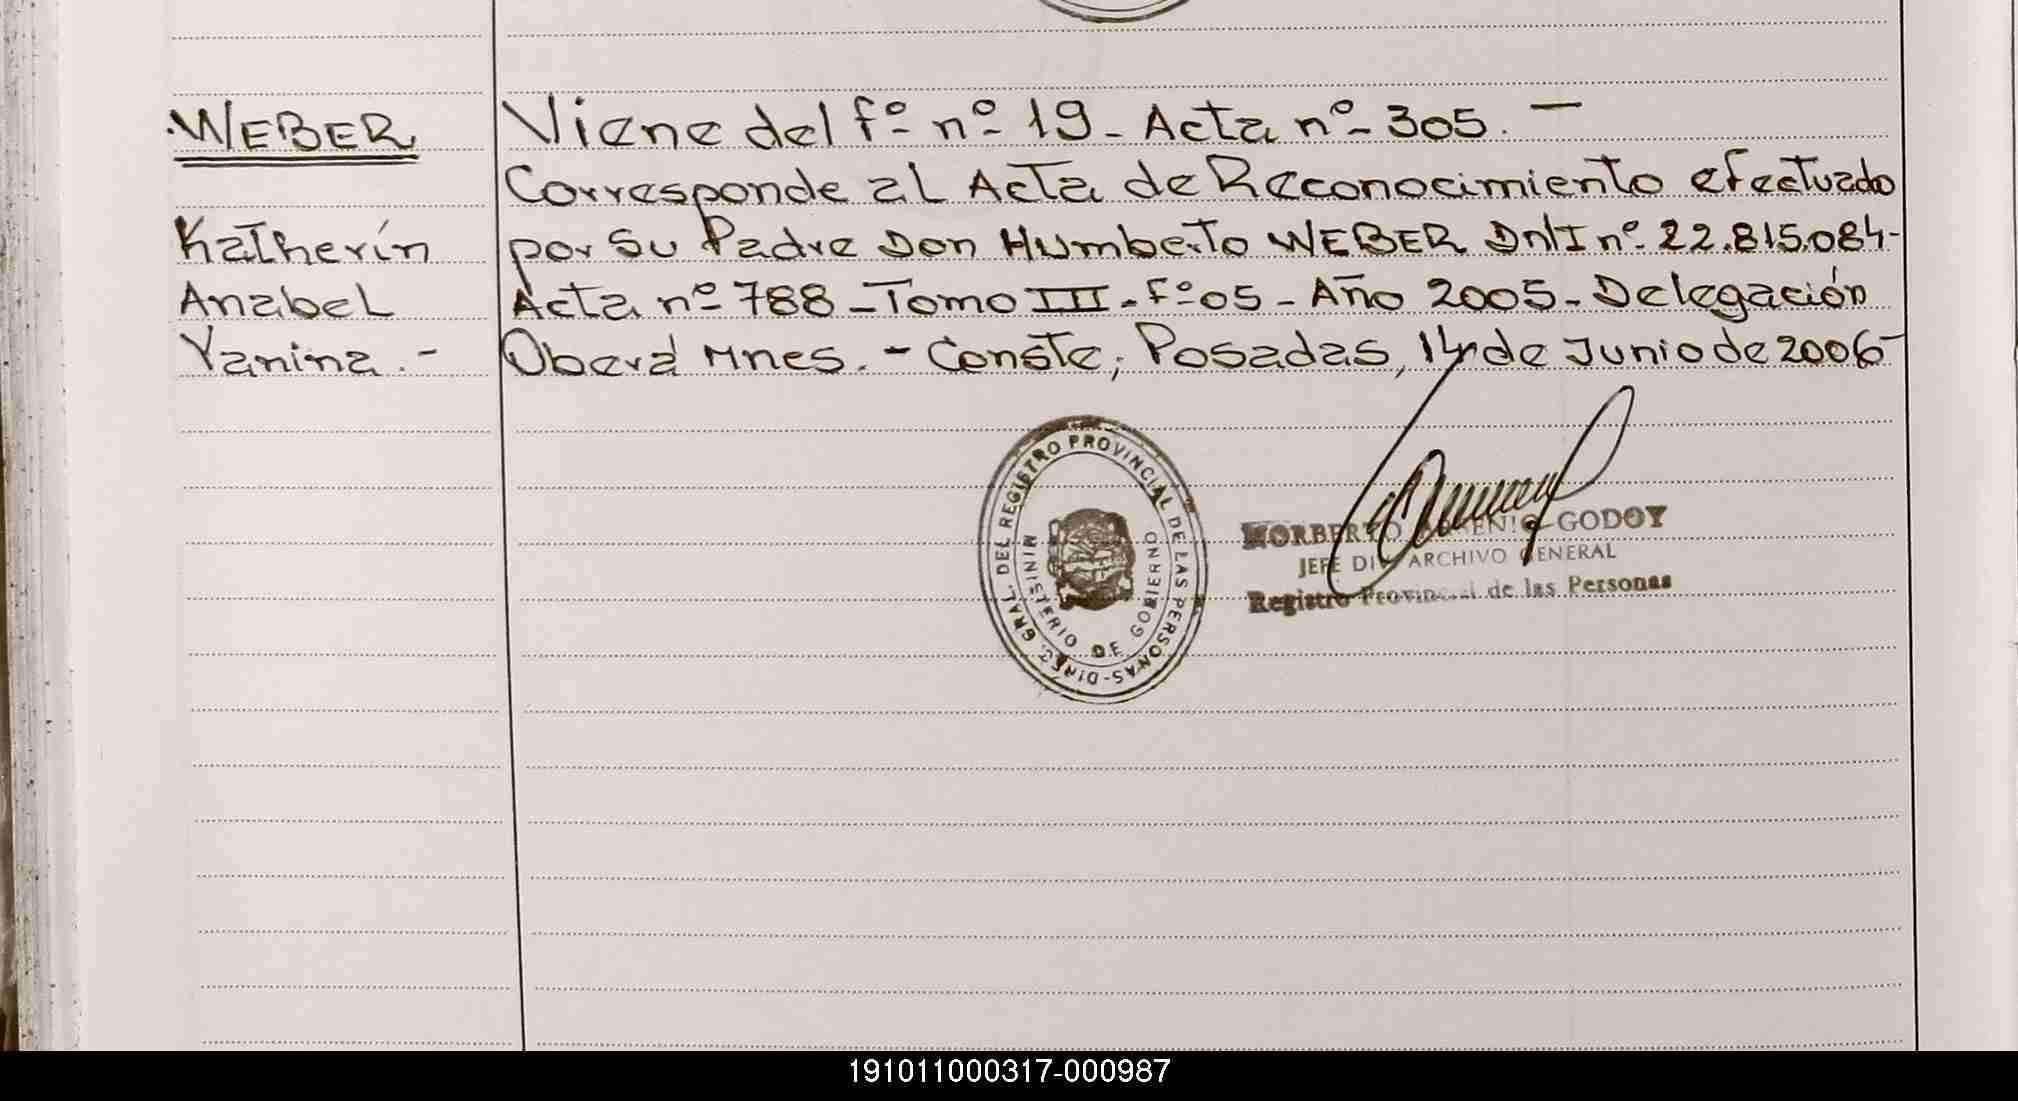 WEBER
Katherín
Anabel
Yanina.-
Viene del fº- nº- 19- Acta nº- 305. —
Corresponde al Acta de Reconocimiento efectuado
por Su Padre Don Humberto WEBER DNI nº 22.815.084-
Acta nº 788-Tomo III- Fº 05- Año 2005- Delegación
Oberá Mnes. - Conste; Posadas, 14 de Junio de 2006-
DIREC. GRAL. DEL REGISTRO PROVINCIAL DE LAS PERSONAS-
MINISTERIO DE GOBIERNO
NORBERTO GODOY
JEFE DIV. ARCHIVO GENERAL
Registro Provincial de las Personas
191011000317-000987